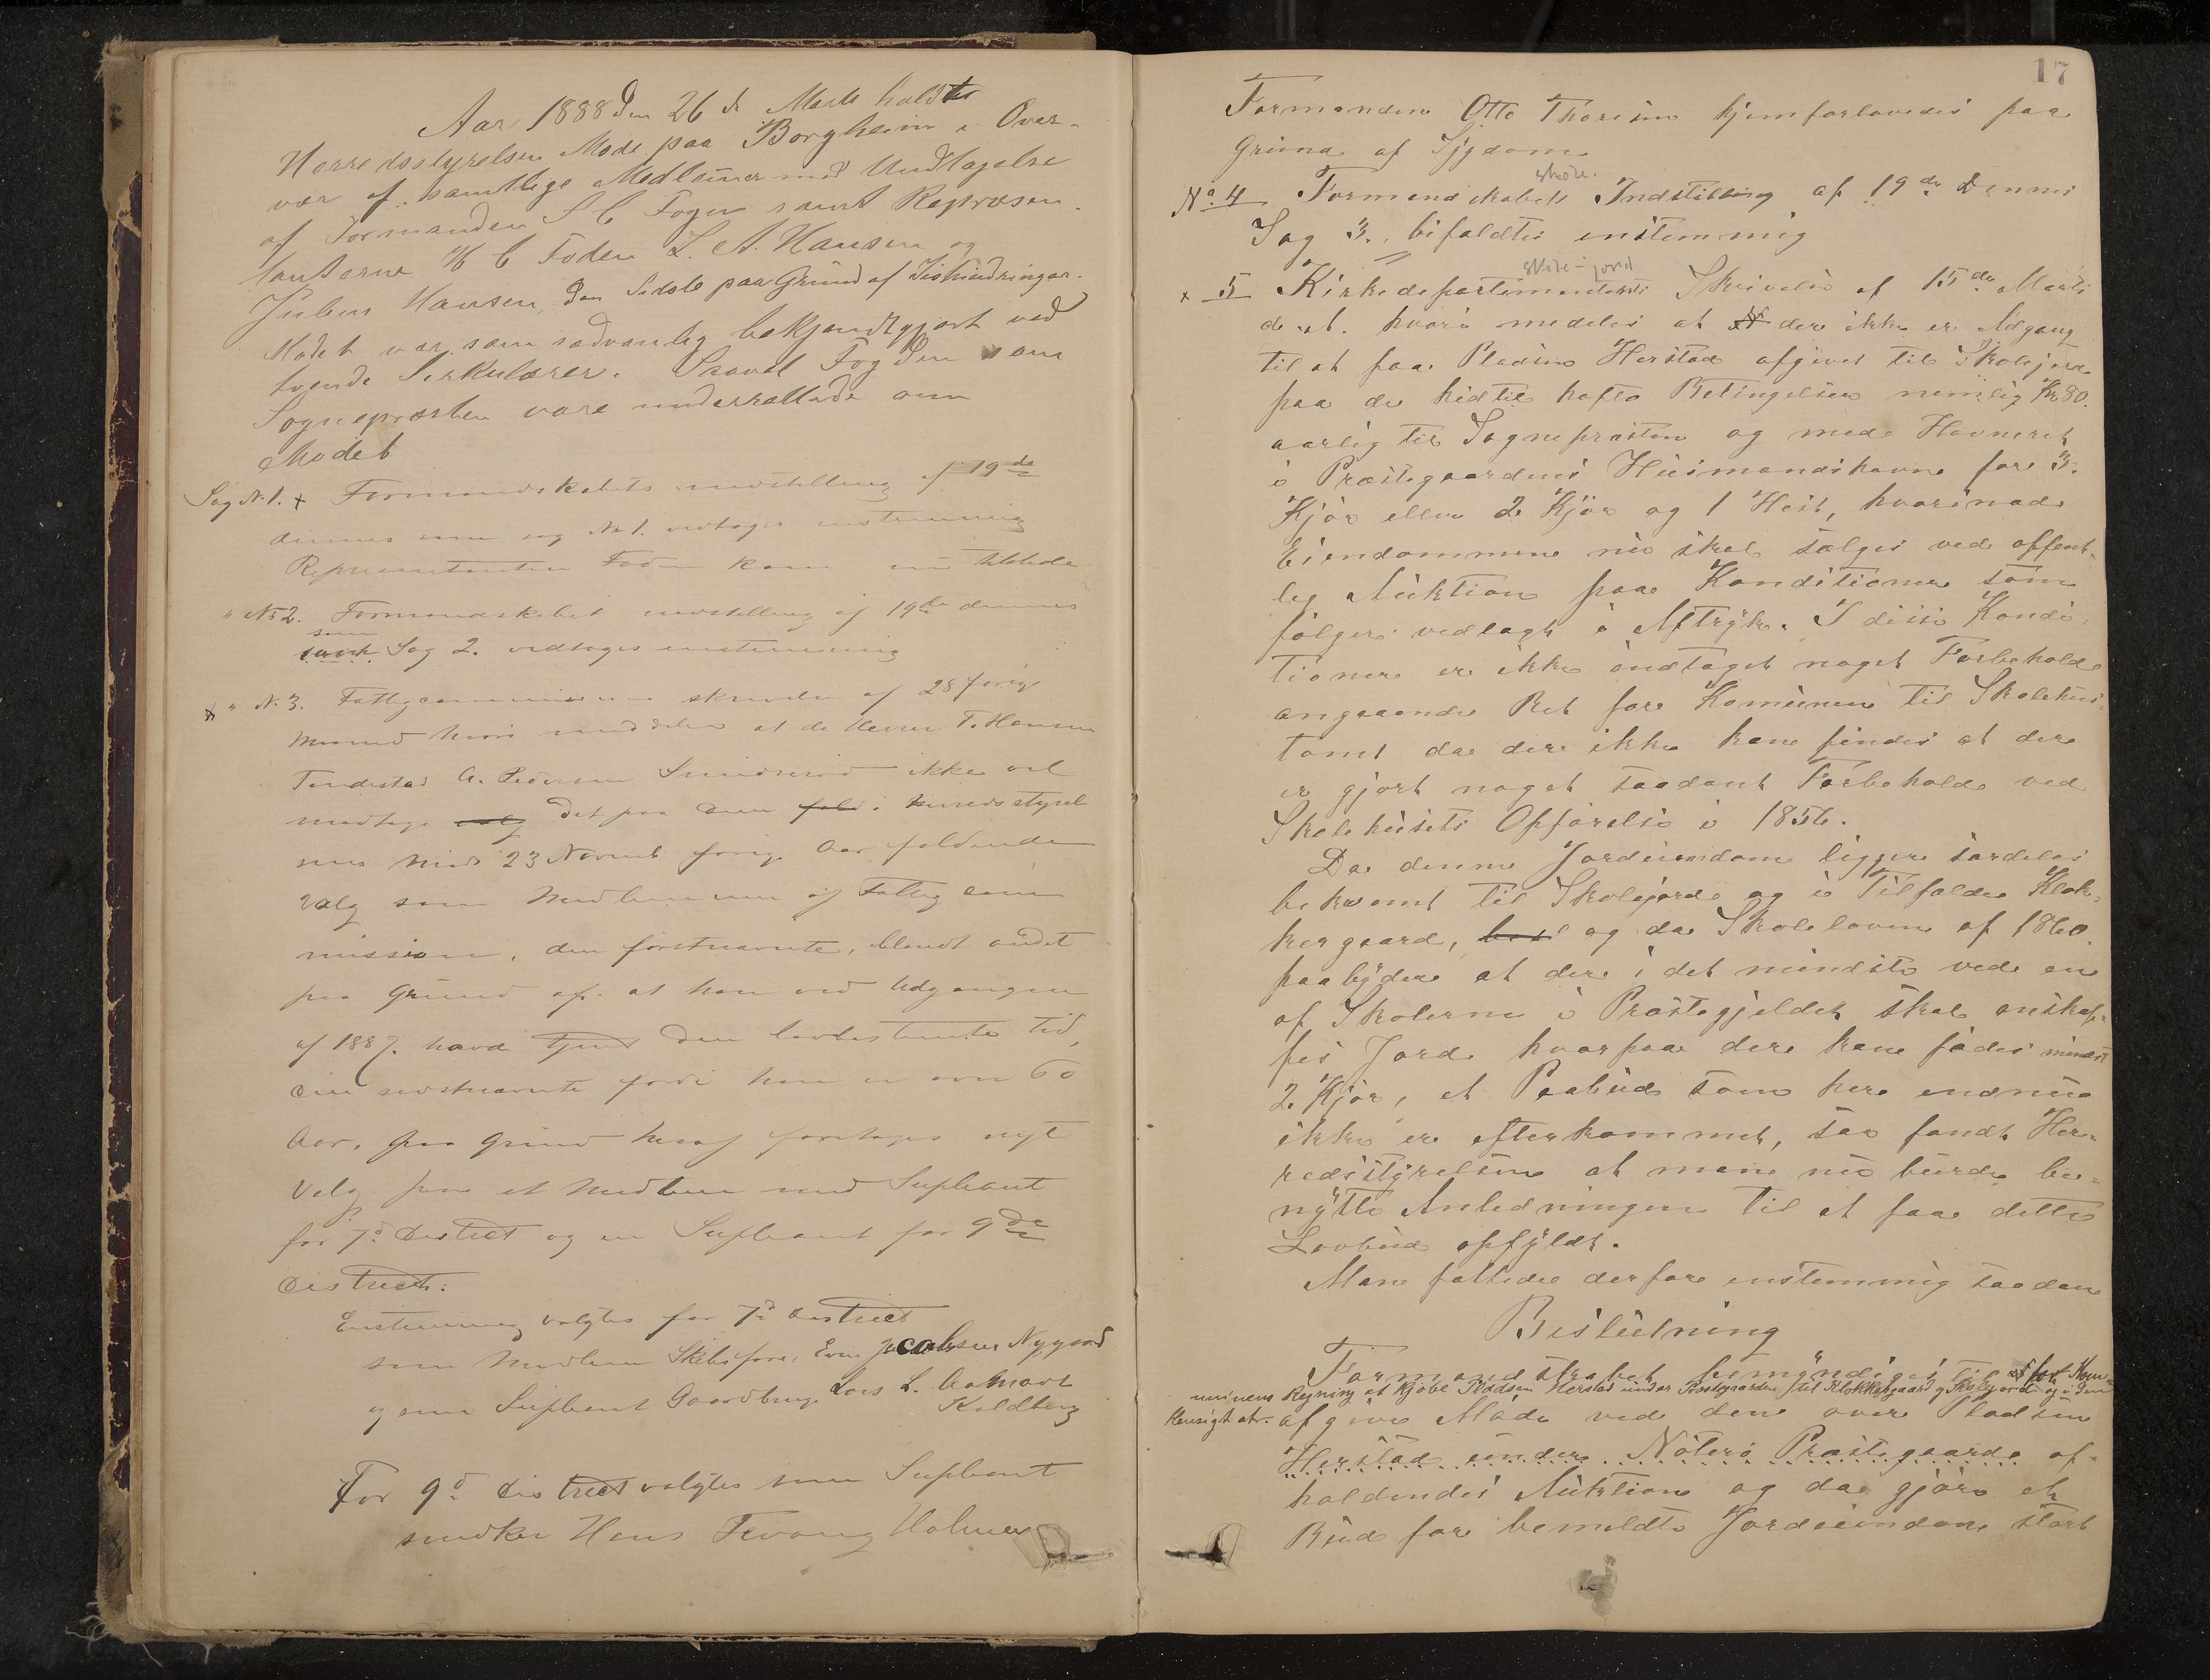 Aar 1888 den 26de Marts holdtes
Herredsstyrelsen Møde paa Borgheim i Over-
vær af samtlige Medlemer med Undtagelse
af Formanden S C Foyn samt Repræsen-
tanterne H C Foden L. A. Hansen og
Julius Hansen, den Sidste paa Grund af Ishindringer.
Mødet var som sædvanlig bekjendtgjort ved
tvende Sirkulærer. Saavel Fogden som
Sognepræsten vare underrettede om
Mødet
Sag N. 1. x Formandskabets indstilling af 19de
dennes som sag No 1. vedtoges enstemmig
Representanten Foden kom nu tilstede
" No 2. Formandskabet indstilling af 19de dennes
som
samt Sag 2. vedtoges enstemmig
x " N. 3. Fattigcommissionens skrivelse af 28 f
Maaned hvori meddeles at de Herrer T. Hansen
A. Pedersen ikke vil
modtage valg det paa dem fald i Herredsstyrel
møde 23 Novemb forrig Aar faldende
Valg som Medlemmer af Fattig com
mission, den førstnævnte, blandt andet
paa Grund af at han ved Udgangen
af 1887. havde tjent den lovbestemte Tid,
den sidstnævnte fordi han er over 60
Aar. paa Grund heraf foretages nyt
Valg paa et Medlem med Supleant
for 7d District og en Supleant for 9de
District.
Enstemmig valgtes for 7d District
som Medlem Skibsfører Even Jacobsen Nygaard
og som Supleant Gaardbruger Lars L.
Koldberg
For 9d District valgtes som Supleant
snedker Hans Holmen
17
Formanden Otto Thoresen hjemforlovedes paa
Grund af Sygdom
skole.
No 4 Formandskabets Indstilling af 19de Dennes
Sag 3. bifaldtes enstemmig
skole-jord
x 5 Kirkedepartementets Skrivelse af 15de Marts
d. A. hvori medeles at der ikke er Adgang
til at faa Pladsen Herstad afgivet til Skolejord
paa de hidtil hafte Betingelser nemlig Kr 80.
aarlig til Sognepræsten og med Havneret
i Præstegaardens Husmandshavn for 3.
Kjør eller 2 Kjør og 1 Hest, hvorimod
Eiendommen nu skal sælges ved offent-
lig Auktion paa Konditioner som
følger vedlagt i Aftryk. I disse Kondi-
tioner er ikke indtaget noget Forbehold
angaaende Ret for Komunen til Skolehus-
tomt da der ikke kan findes at der
er gjort noget saadant Forbehold ved
Skolehusets Opførelse i 1856.
Da denne Jordeiendom ligger særdeles
bekvemt til Skolejord og i Tilfælde Klok-
kergaard, og da Skoleloven af 1860.
paabyder at der i det mindste ved en
af Skolerne i Præstegjeldet skal anskaf-
fes Jord hvorpaa der kan fødes mindst
2 Kjør, et Paabud som her endnu
ikke er efterkommet, saa fandt Her-
redsstyrelsen at man nu burde be-
nytte Anledningen til at faa dette
Lovbud opfyldt.
Man fattede derfor enstemmig saadan
Beslutning
Formandskabet bemyndiges til at for Kom-
munens Regning at kjøbe Pladsen Herstad under Præstegaarden til Klokkergaard og Skolejord og i den
Hensigt at afgive Møde ved den over Pladsen
Herstad under Nøterø Præstegaard af-
holdendes Auktion og da gjøre et
Bud for bemeldte Jordeiendom stort